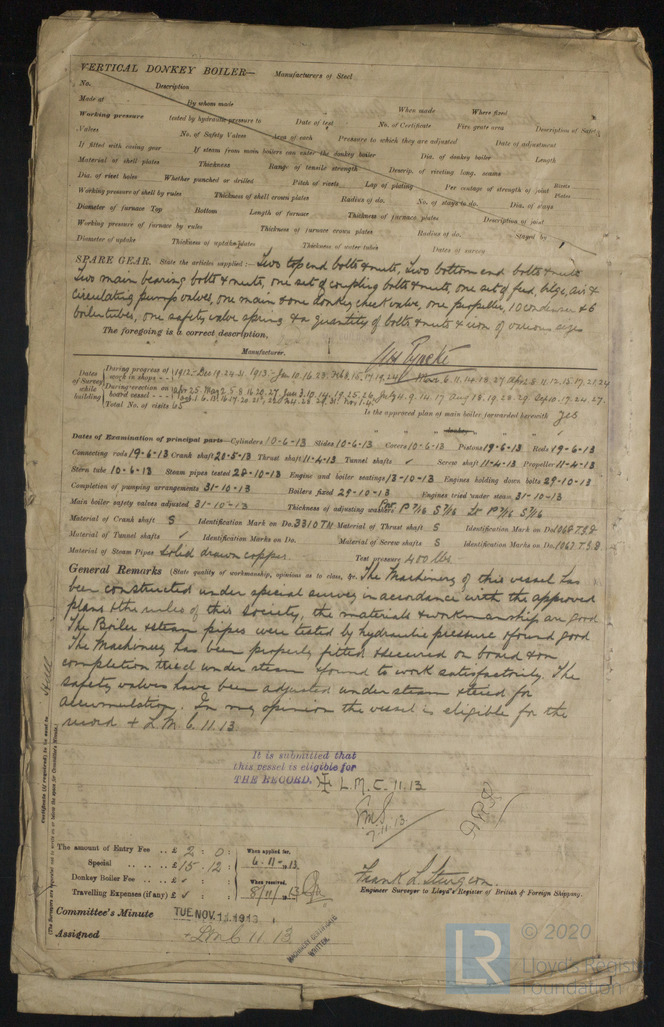 VERTICAL DONKEY BOILER— Manufacturers of Steel
No. Description
Made at By whom made When made Where fixed
Working pressure tested by hydraulic pressure to Date of test No. of Certificate Fire grate area Description of Safety
Valves No. of Safety Valves Area of each Pressure to which they are adjusted Date of adjustment
If fitted with easing gear If steam from main boilers can enter the donkey boiler Dia. of donkey boiler Length
Material of shell plates Thickness Range of tensile strength Descrip. of riveting long. seams
Dia. of rivet holes Whether punched or drilled Pitch of rivets Lap of plating Per centage of strength of joint Rivets Plates
Working pressure of shell by rules Thickness of shell crown plates Radius of do. No. of stays to do. Dia. of stays
Diameter of furnace Top Bottom Length of furnace Thickness of furnace plates Description of joint
Working pressure of furnace by rules Thickness of furnace crown plates Radius of do. Stayed by
Diameter of uptake Thickness of uptake plates Thickness of water tubes Dates of survey
SPARE GEAR. State the articles supplied:— Two top end bolts & nuts, Two bottom end bolts & nuts
Two main bearing bolts & nuts, one set of coupling bolts & nuts, one set of feed, bilge, air &
circulating pump valves, one main & one donkey check valve, one propeller, 10 condenser & 6
boiler tubes, one safety valve spring & a quantity of bolts & nuts & iron of various sizes
The foregoing is a correct description,
Manufacturer.
Dates of Survey while building
During progress of work in shops - - 1912:- Dec 19. 24. 31. 1913:- Jan 10. 16. 23.
During erection on board vessel - - -
Total No. of visits 65
Is the approved plan of main boiler forwarded herewith Yes
Dates of Examination of principal parts—Cylinders 10-6-13 Slides 10-6-13 Covers 10-6-13 Pistons 19-6-13 Rods 19-6-13
Connecting rods 19-6-13 Crank shaft 20-5-13 Thrust shaft 11-4-13 Tunnel shafts ✓ Screw shaft 11-4-13 Propeller 11-4-13
Stern tube 10-6-13 Steam pipes tested 28-10-13 Engine and boiler seatings 13-10-13 Engines holding down bolts 29-10-13
Completion of pumping arrangements 31-10-13 Boilers fixed 29-10-13 Engines tried under steam 31-10-13
Main boiler safety valves adjusted 31-10-13 Thickness of adjusting washers Port P 7/16 S 7/16 St P 7/16 S 7/16
Material of Crank shaft S Identification Mark on Do. 3310TH Material of Thrust shaft S Identification Mark on Do. 1068 T.S.B
Material of Tunnel shafts ✓ Identification Marks on Do. Material of Screw shafts S Identification Marks on Do. 1067 T.S.B
Material of Steam Pipes Solid drawn copper Test pressure 400 lbs
General Remarks (State quality of workmanship, opinions as to class, &c. The Machinery of this vessel has
been constructed under special survey in accordance with the approved
plans & the rules of this Society, the materials & workmanship are good
The Boiler & steam pipes were tested by hydraulic pressure & found good
The Machinery has been properly fitted & secured on board & on
completion tried under steam & found to work satisfactorily. The
safety valves have been adjusted under steam & tried for
accumulation. In my opinion the vessel is eligible for the
record + L.M.C. 11.13
It is submitted that
this vessel is eligible for
THE RECORD. + L.M.C. 11.13.
7.11.13.
The amount of Entry Fee .. £ 2 : 0 : When applied for,
Special .. £ 15 : 12 : 6.11.1913.
Donkey Boiler Fee .. £ : : When received,
Travelling Expenses (if any) £ : : 8/11/1913
Frank L. Sturgeon.
Engineer Surveyor to Lloyd's Register of British & Foreign Shipping.
Committee's Minute TUE. NOV. 11. 1913
Assigned + L.M.C. 11.13
MACHINERY CERTIFICATE
WRITTEN.
Hull
Certificate (if required) to be sent to
(The Surveyors are requested not to write on or below the space for Committee's Minute.)
© 2020
LR
Lloyd's Register
Foundation